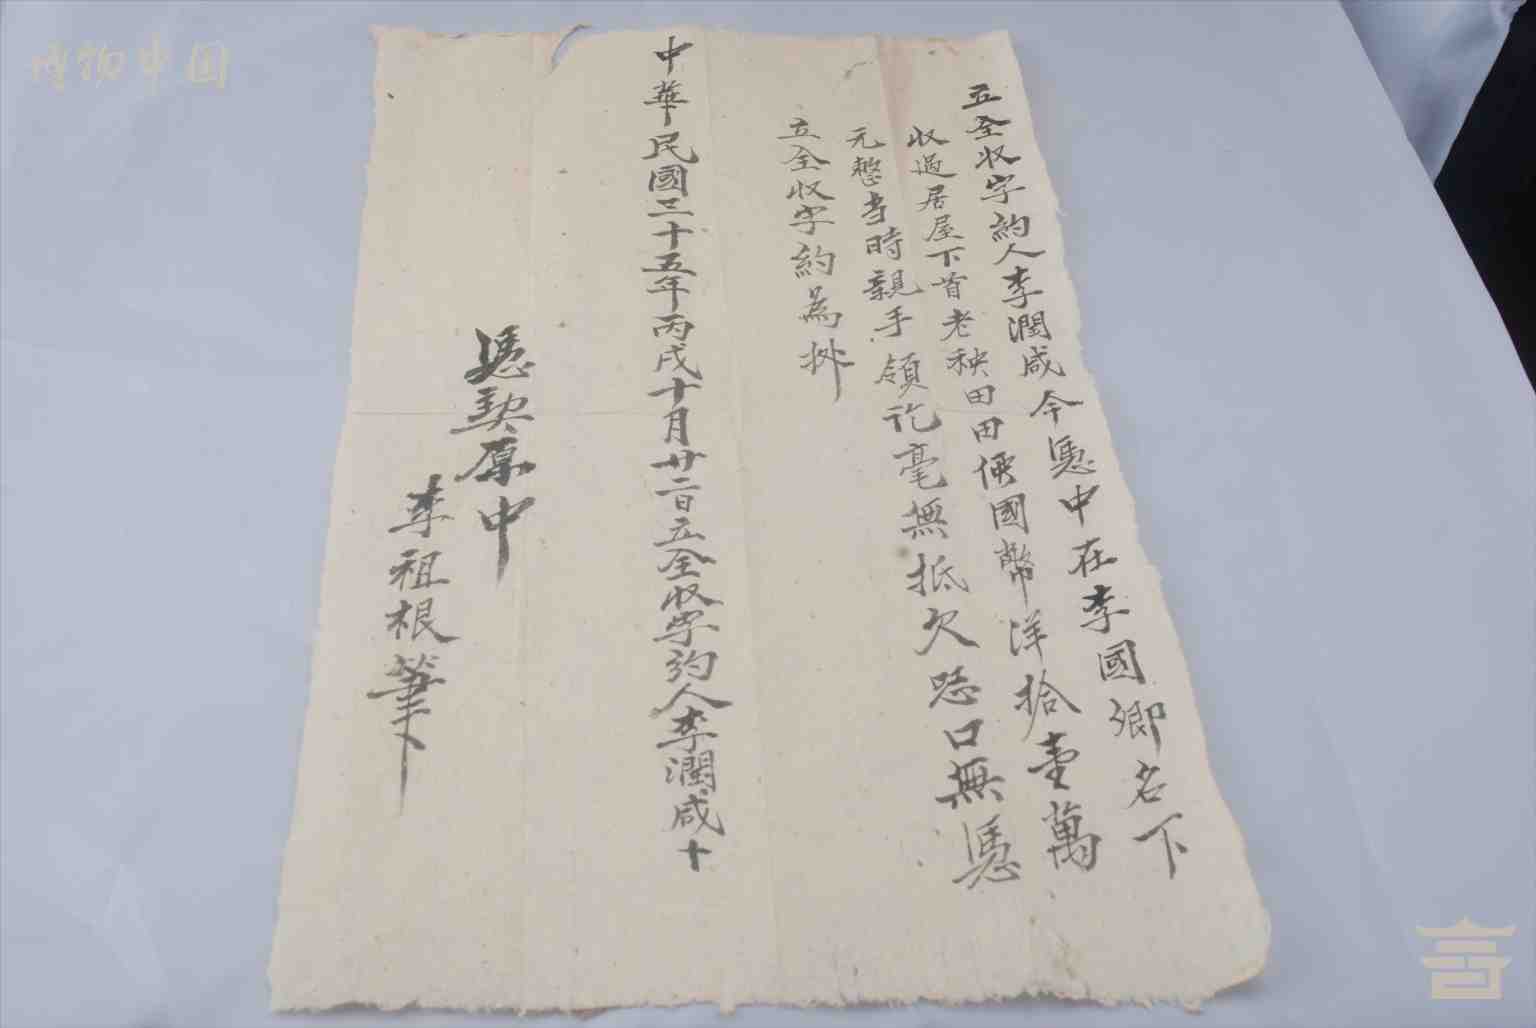 立全收字約人李潤咸今憑中在李國卿名下
收過居屋下首老秧田田價國幣洋拾壹萬
元整当時親手領訖毫無抵欠恐口無憑
立全收字約為挀
中華民國三十五年丙戌十月廿二日立全收字約人李潤咸十
憑契原中
李祖根筆
博物中国